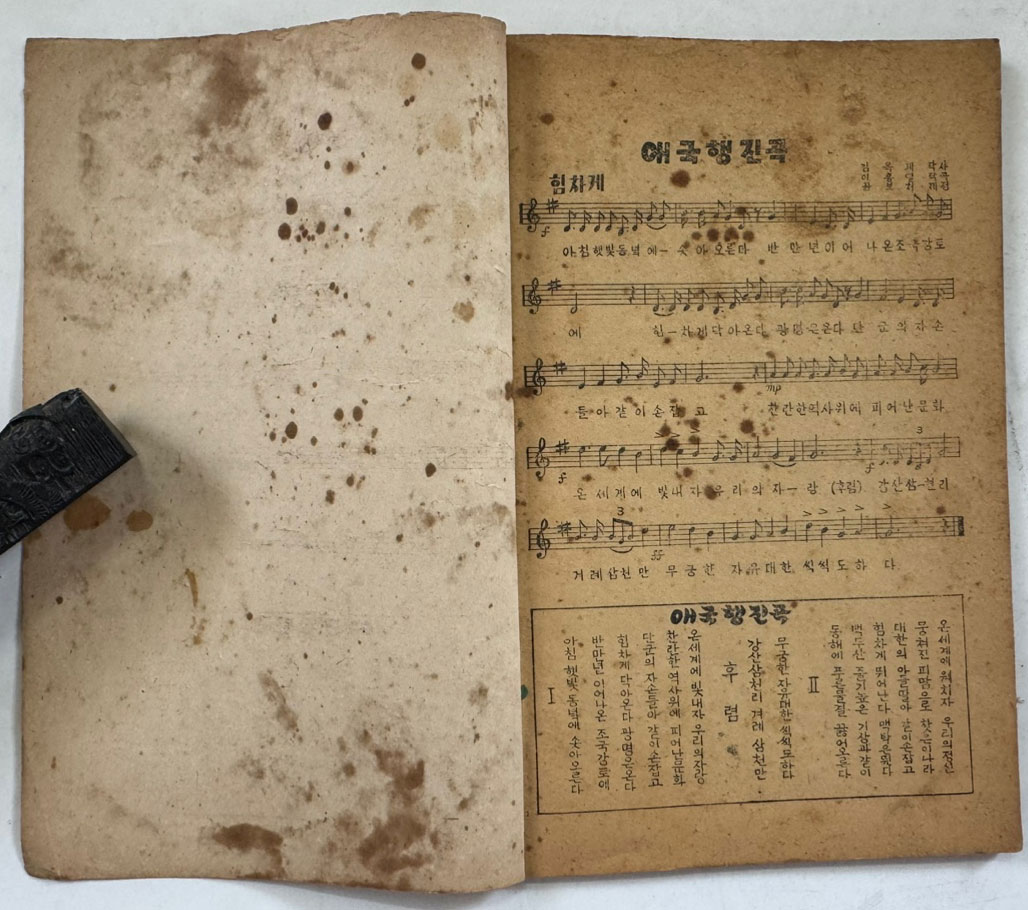 애국행진곡
힘차게
f
아침햇빛동녘에— 솟아오른다 반만년이어 나온조국강토
에 힘—차게닥아온다 광명은온다 단군의자손
mp
들아같이손잡고 찬란한역사위에 피어난문화
3
f f
온세계에 빛내자 우리의자—랑 (후렴) 강산삼—천리
3
ff
겨레삼천만 무궁한 자유대한 씩씩도하다
애국행진곡
I
아침햇빛동녘에 솟아오른다
반만년이어나온 조국강토에
힘차게닥아온다 광명은온다
단군의자손들아 같이손잡고
찬란한역사위에 피어난문화
온세계에빛내자 우리의자랑
후렴
강산삼천리 겨레삼천만
무궁한자유대한 씩씩도하다
II
동해에
백두산 줄기 기상과같이
힘차게 뛰어난다
대한의 아들딸아 같이손잡고
뭉쳐진 피땀으로
온세계에외치자 우리의